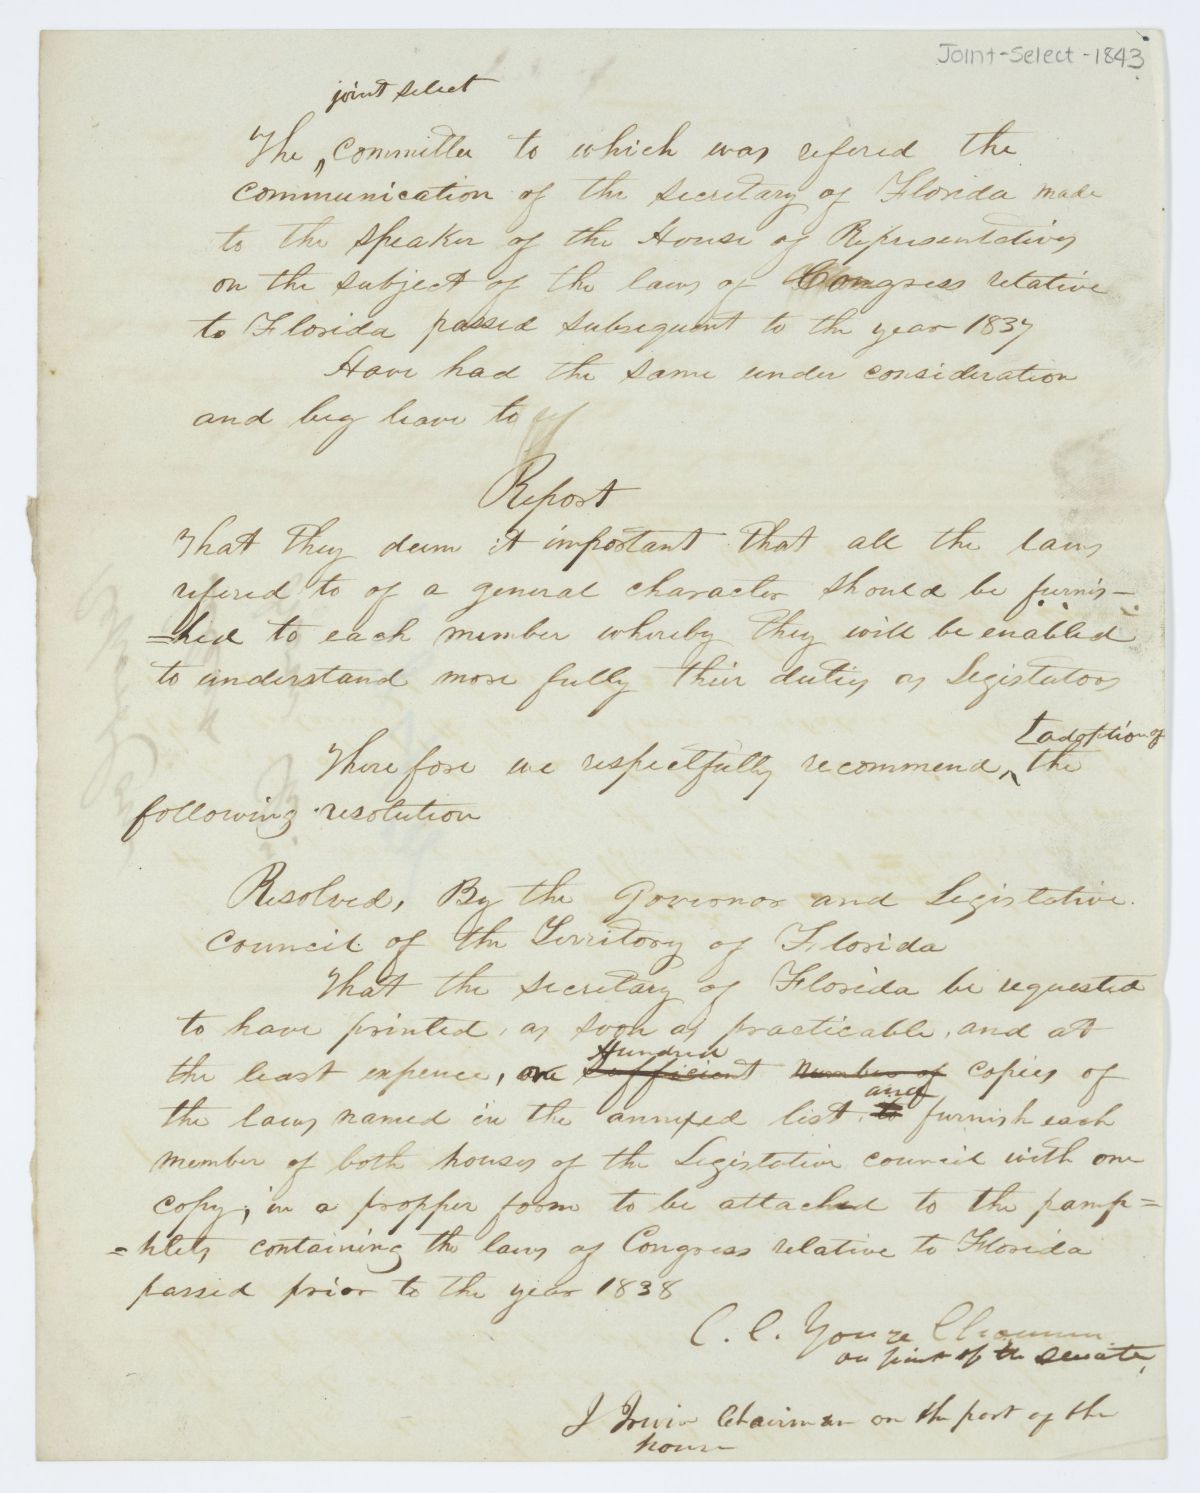 Joint-Select-1843
joint select
The committee to which was refered the
communication of the secretary of Florida made
to the speaker of the House of Representatives
on the subject of the laws of Congress relative
to Florida passed subsequent to the year 1837
Have had the same under consideration
and beg leave to
Report
That they deem it important that all the laws
refered to of a general character should be furnis-
=hed to each member whereby they will be enabled
to understand more fully their duties as Legistators
adoption of
Therefore we respectfully recommend, the
following resolution
Resolved, By the Governor and Legistative
council of the Territory of Florida
That the secretary of Florida be requested
to have printed, as soon as practicable, and at
Hundred
the least expence, one sufficient number of copies of
and
the laws named in the annexed list, to furnish each
member of both houses of the Legistative council with one
copy, in a propper form to be attached to the pamp=
=hlets containing the laws of Congress relative to Florida
passed prior to the year 1838
C. C. Yonge Chairman
on part of the senate,
J Irwin Chairman on the part of the
house